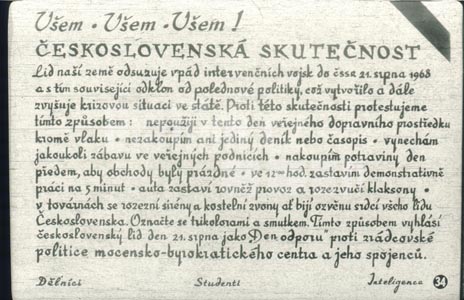 Všem • Všem • Všem!
ČESKOSLOVENSKÁ SKUTEČNOST
Lid naší země odsuzuje vpád intervenčních vojsk do čssr 21. srpna 1968
a s tím související odklon od polednové politiky, což vytvořilo a dále
zvyšuje krizovou situaci ve státě. Proti této skutečnosti protestujeme
tímto způsobem: nepoužiji v tento den veřejného dopravního prostředku
kromě vlaku • nezakoupím ani jediný deník nebo časopis • vynechám
jakoukoli zábavu ve veřejných podnicích • nakoupím potraviny den
předem, aby obchody byly prázdné • ve 12⁰⁰ hod. zastavím demonstrativně
práci na 5 minut • auta zastaví rovněž provoz a rozezvučí klaksony •
v továrnách se rozezní sirény a kostelní zvony ať bijí ozvěnu srdcí všeho lidu
Československa. Označte se trikolorami a smutkem. Tímto způsobem vyhlásí
československý lid den 21. srpna jako „Den odporu" proti zrádcovské
politice mocensko-byrokratického centra a jeho spojenců.
Dělníci Studenti Inteligence 34